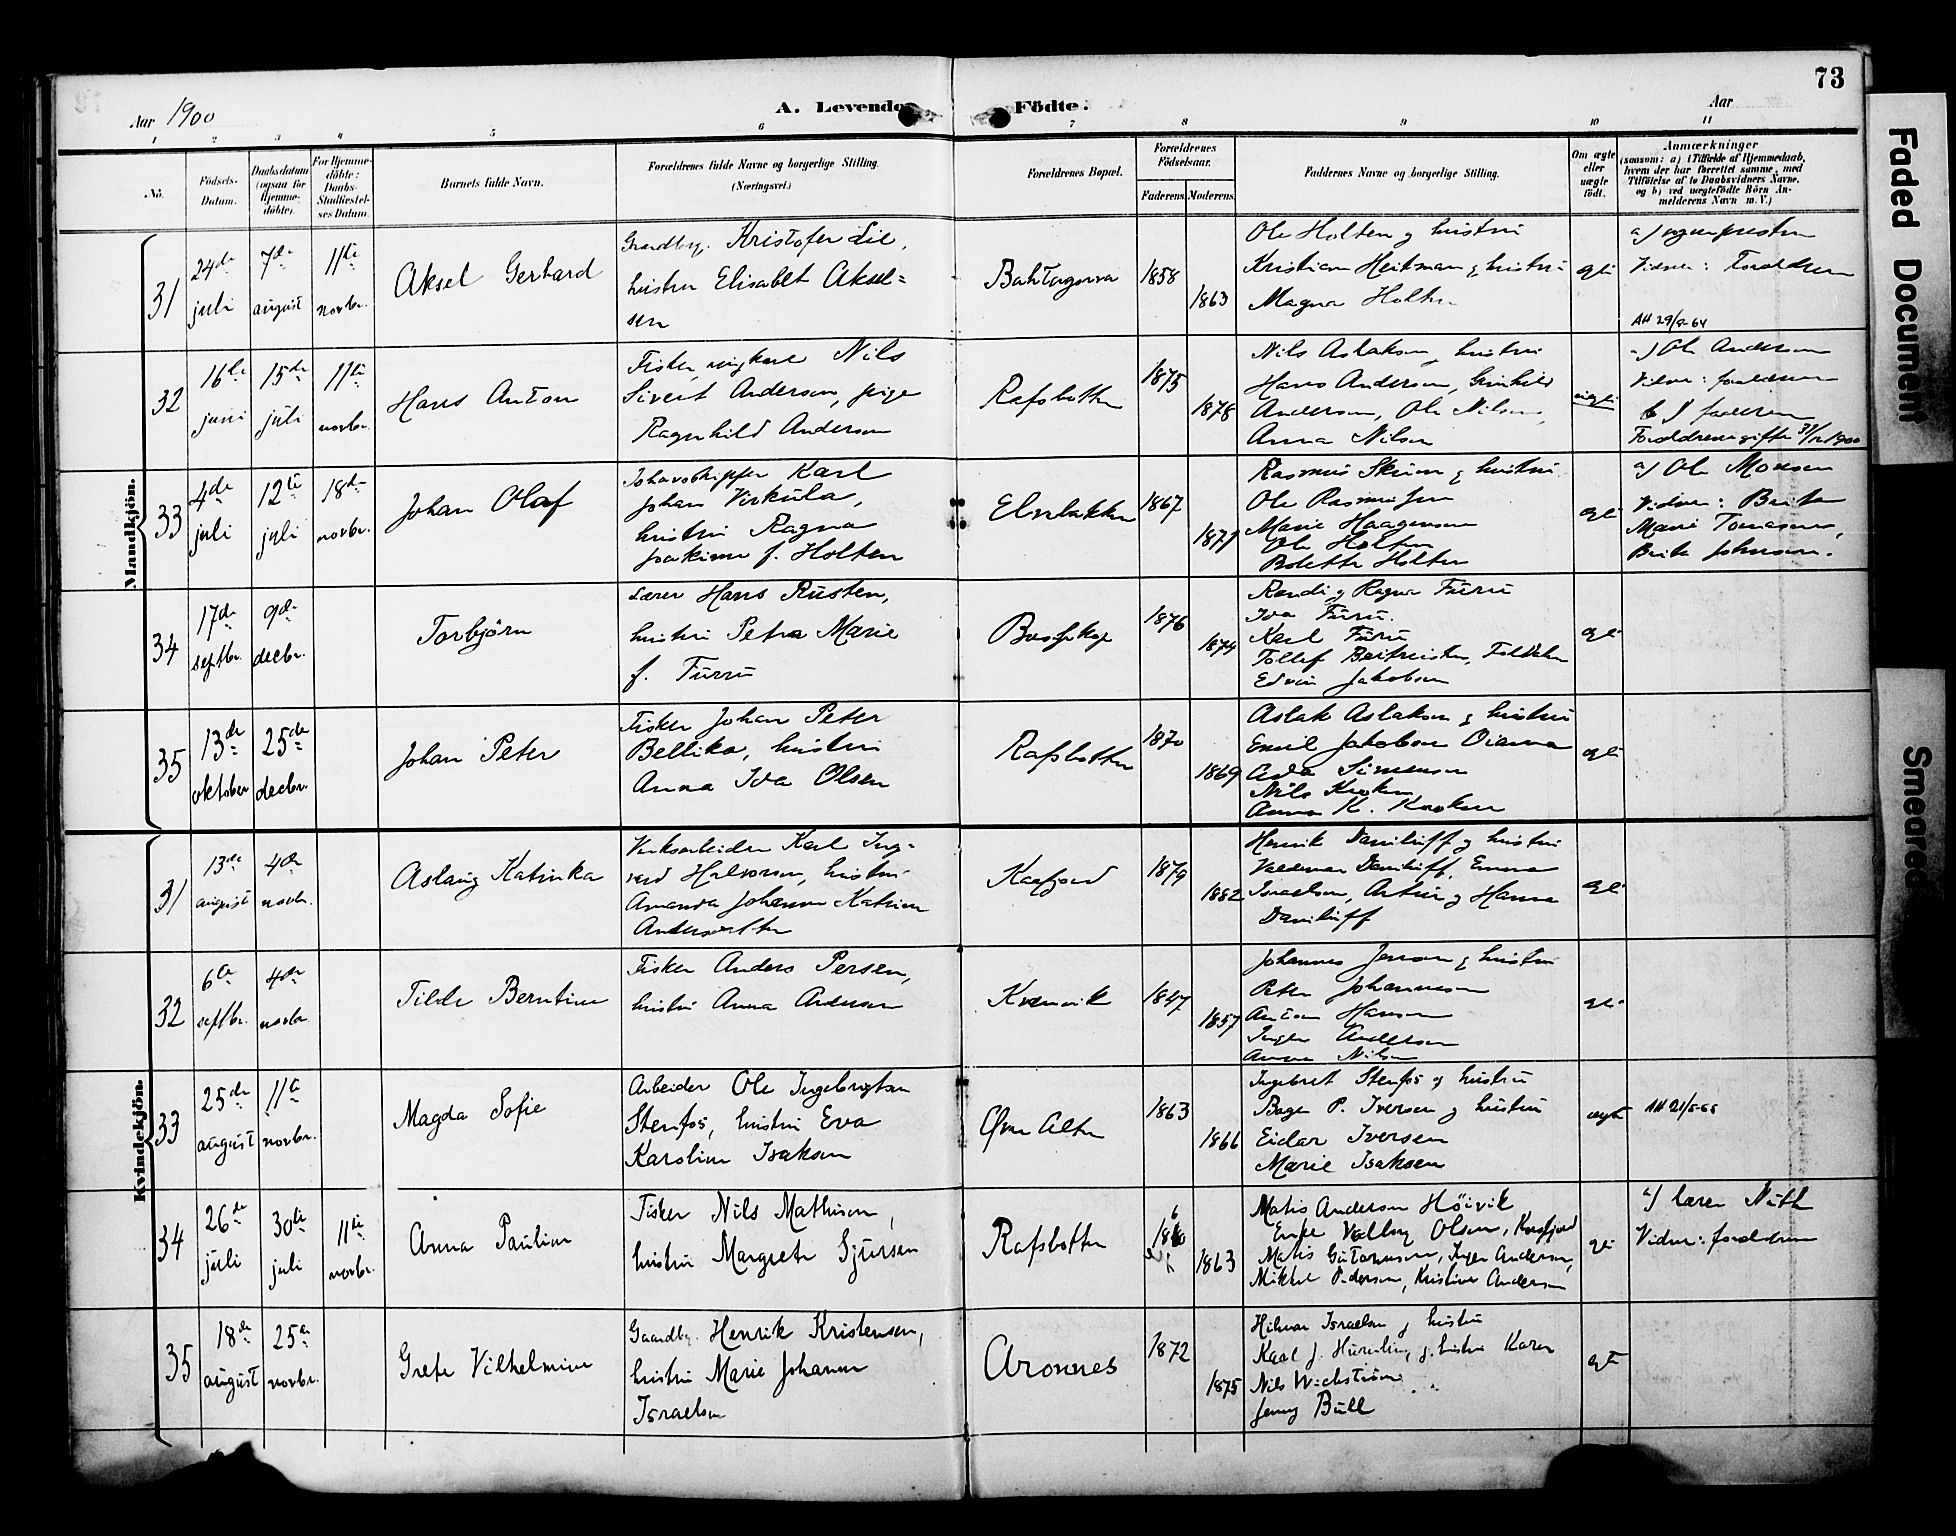 73
Aar 1900
A. Levende Födte.
Aar
1 2 3 4 5 6 7 8 9 10 11
No.
Födsels-
Datum.
Daabsdatum
(ogsaa for
Hjemme-
döbte).
For Hjemme-
döbte:
Daabs-
Stadfæstel-
ses Datum.
Barnets fulde Navn.
Forældrenes fulde Navne og borgerlige Stilling.
(Næringsvei.)
Forældrenes Bopæl.
Forældrenes
Födselsaar.
Faderens. Moderens.
Faddernes Navne og borgerlige Stilling.
Om ægte
eller
uægte
födt.
Anmærkninger
(saasom: a) i Tilfælde af Hjemmedaab,
hvem der har forrettet samme, med
Tilföielse af to Daabsvidners Navne,
og b) ved uægtefödte Börn An-
melderens Navn m. V.)
Mandkjön.
31
24de juli
7de august
11te novbr.
Aksel Gerhard
Gaardbr. Kristofer Lie,
hustru Elisabet Aksel-
sen
1858
1863
Ole Holten og hustru
Kristian Heitman og hustru
Magna Holten
Vidner: Forældrene
AH 29/8-64
32
16de juni
15de juli
11te novbr.
Hans Anton
Fisker, ungkarl Nils
Sivert Andersen, pige
Ragnhild Andersen
Rafsbotten
1875
1878
Nils Aslaksen, hustru
Hans Andersen, Gunhild
Andersen, Ole Nilsen,
Anna Nilsen
uægte
a) Ole Andersen
Vidner: forældrene
b) faderen
Forældrene gifte 31/12 1900
33
4de juli
12te juli
18de novbr.
Johan Olaf
Karl
Johan Virkula,
hustru Ragna
Joakime f. Holten
Elvebakken
1867
1871
Rasmus Skum og hustru
Ole Rasmussen
Marie Haagensen
Ole Holten
Bolette Holten
ægte
a) Ole Monsen
Vidner: Berit
Marie Tomasdr.,
Berit Johnsen.
34
17de septbr.
9de decbr.
Torbjörn
Lærer Hans Rusten,
hustru Petra Marie
f. Furu
Bossekop
1876
1874
Randi og Ragna Furu
Iva Furu.
Karl Furu
Edvin Jakobsen
ægte
35
13de oktober
25de decbr.
Johan Peter
Fisker Johan Peter
Bellika, hustru
Anna Iva Olsen
Rafsbotten
1870
1869
Aslak Aslaksen og hustru
Emil Jakobsen
Aida Simensen
Nils Kroken
Anna K. Kroken
ægte
Kvindekjön.
31
13de august
4de novbr.
Aslaug Katinka
Verksarbeider Karl Ing-
vald Halvorsen, hustru
Amanda Johanne Katrine
Andersdtter
Kaafjord
1879
1882
Henrik Daniluff og hustru
Valdemar Daniluff, Emma
Israelsen, Artur og Hanna
Daniluff
ægte
32
6te septbr.
4de novbr.
Tilde Berntine
Fisker Anders Persen,
hustru Anna Andersen
Kvænvik
1847
1857
Johannes Jensen og hustru
Peter Johannesen
Anton Hansen
Inger Andersen
Anna Nilsen
ægte
33
25de august
11te novbr.
Magda Sofie
Arbeider Ole Ingebrigtsen
Stenfos, hustru Eva
Karoline Isaksen
Øvre Alten
1863
1866
Ingebret Stenfos og hustru
P. Iversen og hustru
Eidar Iversen
Marie Isaksen
ægte
AH 21/5-65
34
26de juli
30te juli
11te novbr.
Anna Pauline
Fisker Nils Mathisen,
hustru Margrete Sjursen
Rafsbotten
1863
Matis Andersen Höivik
Valborg Olsen, Kaafjord
Matis Guttormsen, Inger Andersen,
Mikkel Pedersen, Kristine Andersen
ægte
a) lærer Nuth
Vidner: forældrene
35
18de august
25de novbr.
Grete Vilhelmine
Gaardbr. Henrik Kristensen,
hustru Marie Johanne
Israelsen
Aronnes
1872
1875
Hilmar Israelsen og hustru
Nils Wickström
Jenny Bull
ægte
Faded Document
Smeared